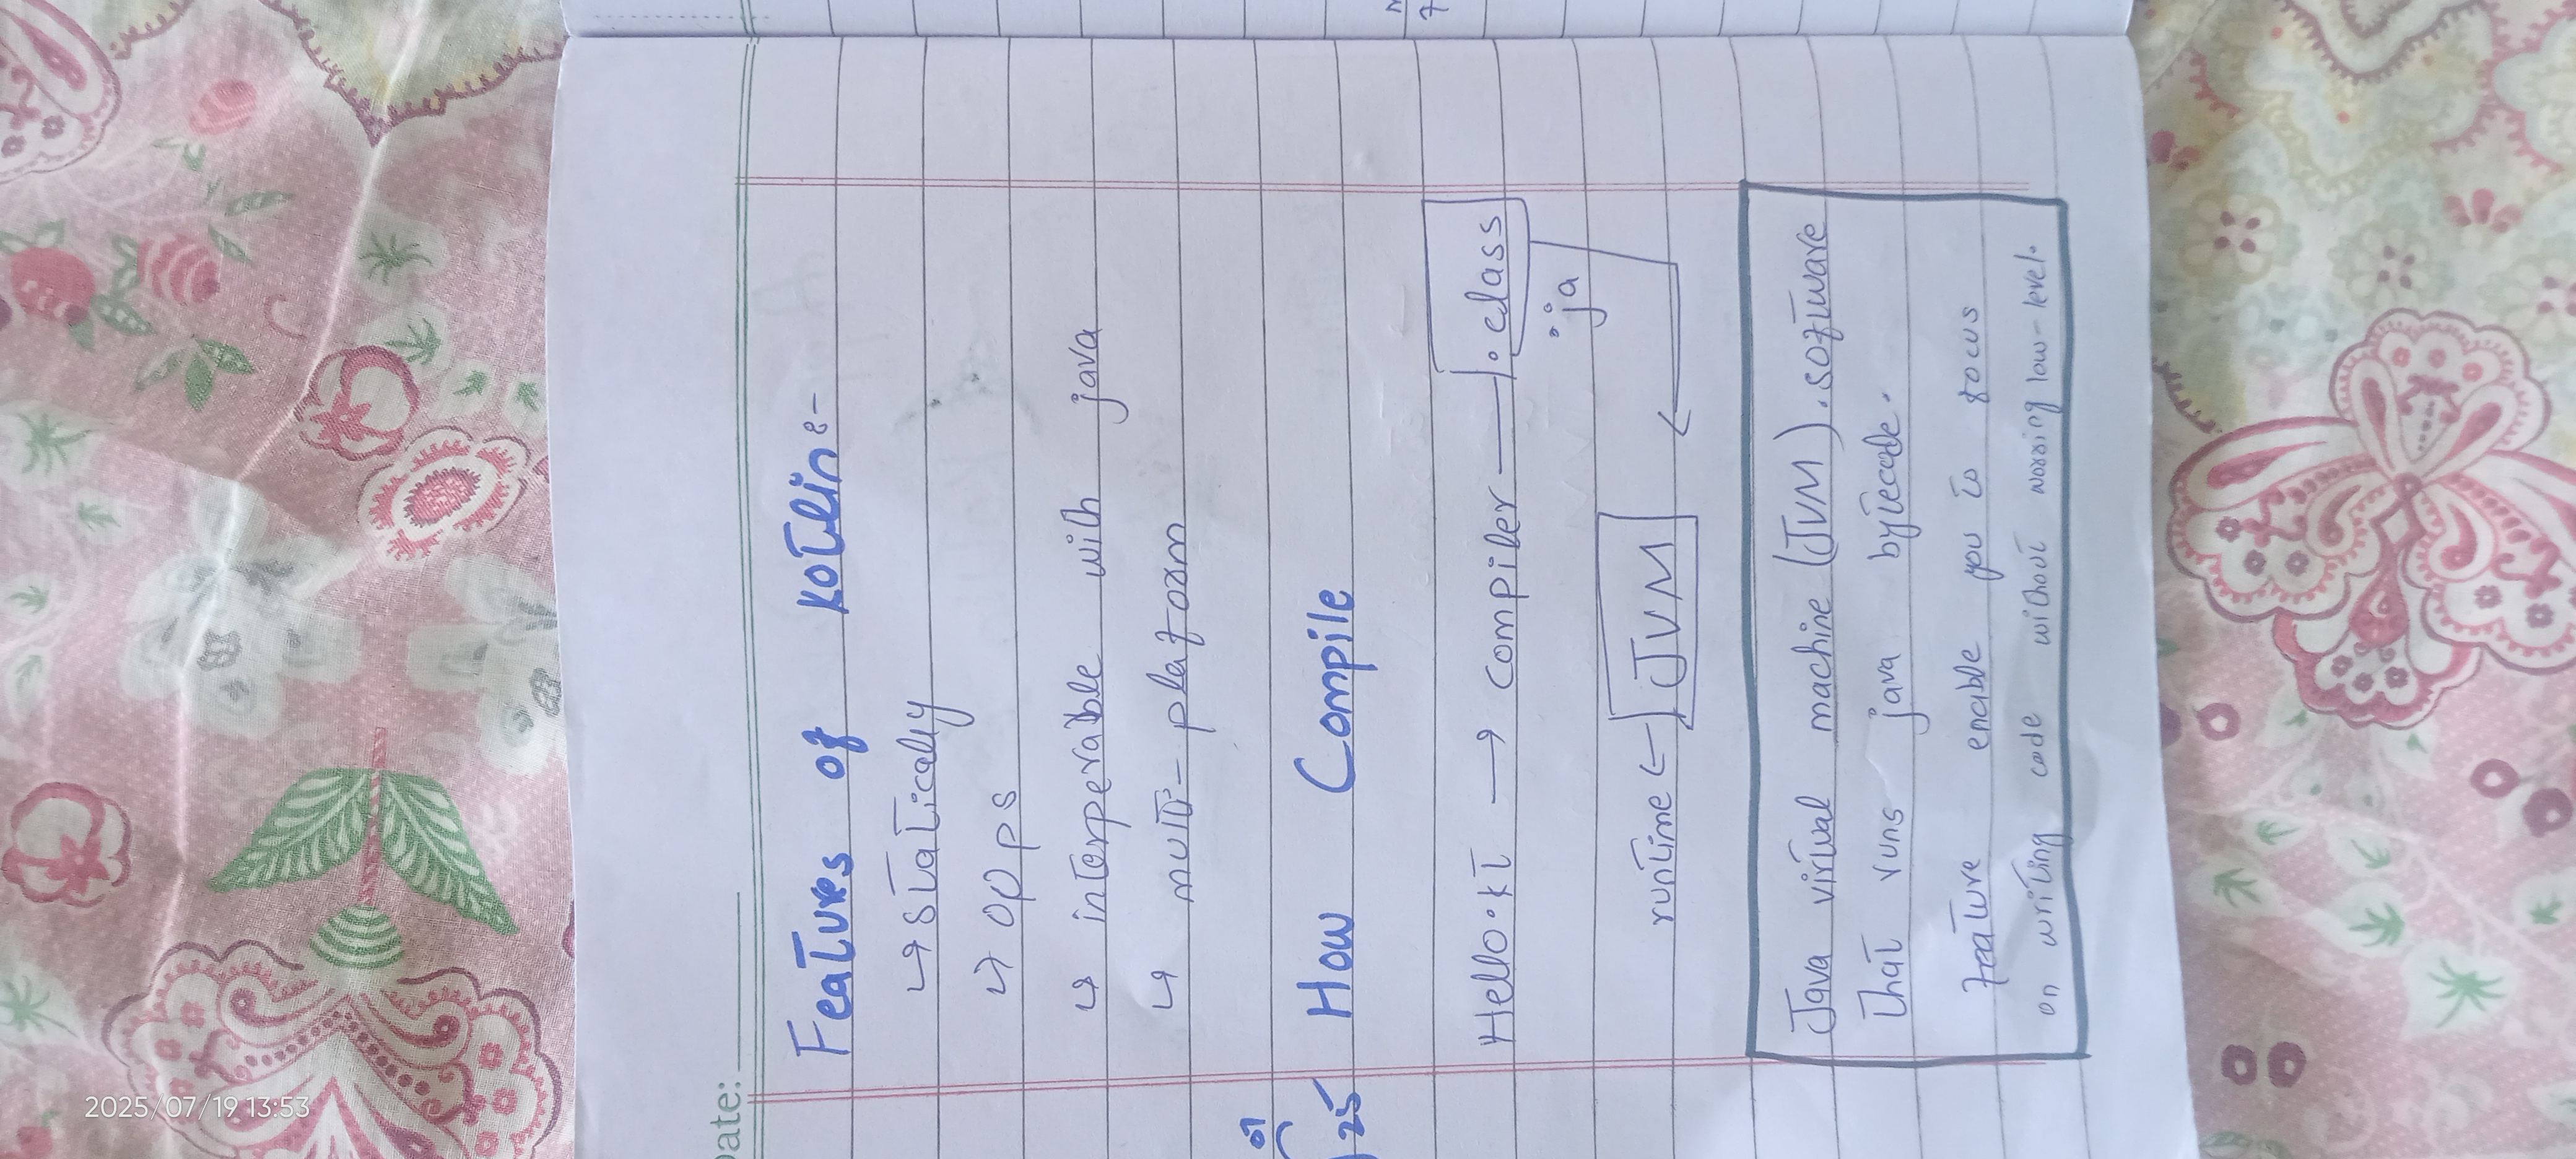 2025/07/19 13:53
Date:
Features of Kotlin :-
↳ statically
↳ oops
↳ interperable with java
↳ multi-platform
07
25
How Compile
Hello.kt → compiler → .class
.ja
runtime ← JVM
Java virtual machine (JVM). software
that runs java bytecode.
feature enable you to focus
on writing code without worring low-level.